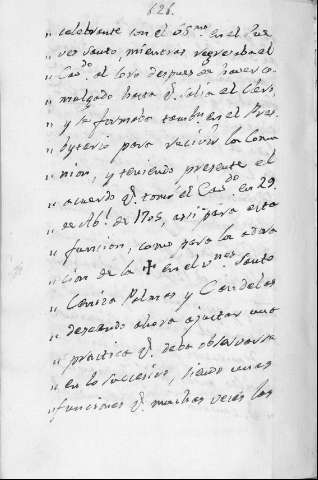 626.
„ celebrante con el SSmo. en el Jue-
„ ves Santo, mientras regresaba el
„ Cavdo. al Coro despues de haver co-
„ mulgado hasta q. salia el Clero,
„ y se formaba tambn. en el Pres-
„ byterio para recivir la Comu
„ nion, y teniendo presente el
„ acuerdo q. tomó el Cavdo. en 29.
„ de Abl. de 1705, assi para esta
„ funcion, como para la adora
„ cion de la ✝ en el Vnes. Santo
„ Ceniza Palmas y Candelas
„ deseando ahora ajustar una
„ practica q. deba observarse
„ en lo succesivo, siendo unas
„ funciones q. muchas veces las